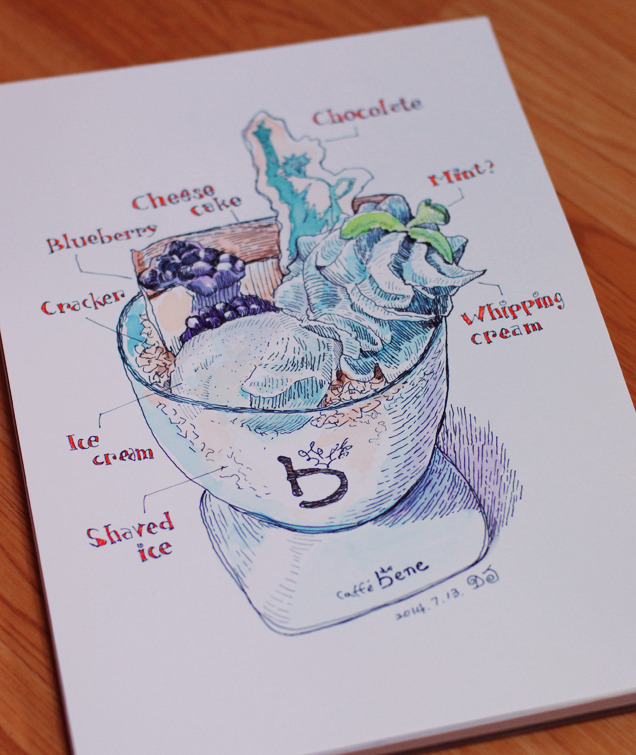 Chocolete
Mint?
Cheese
cake
Blueberry
Cracker
Whipping
cream
Ice
cream
Shaved
ice
b
caffé
bene
2014.7.13.